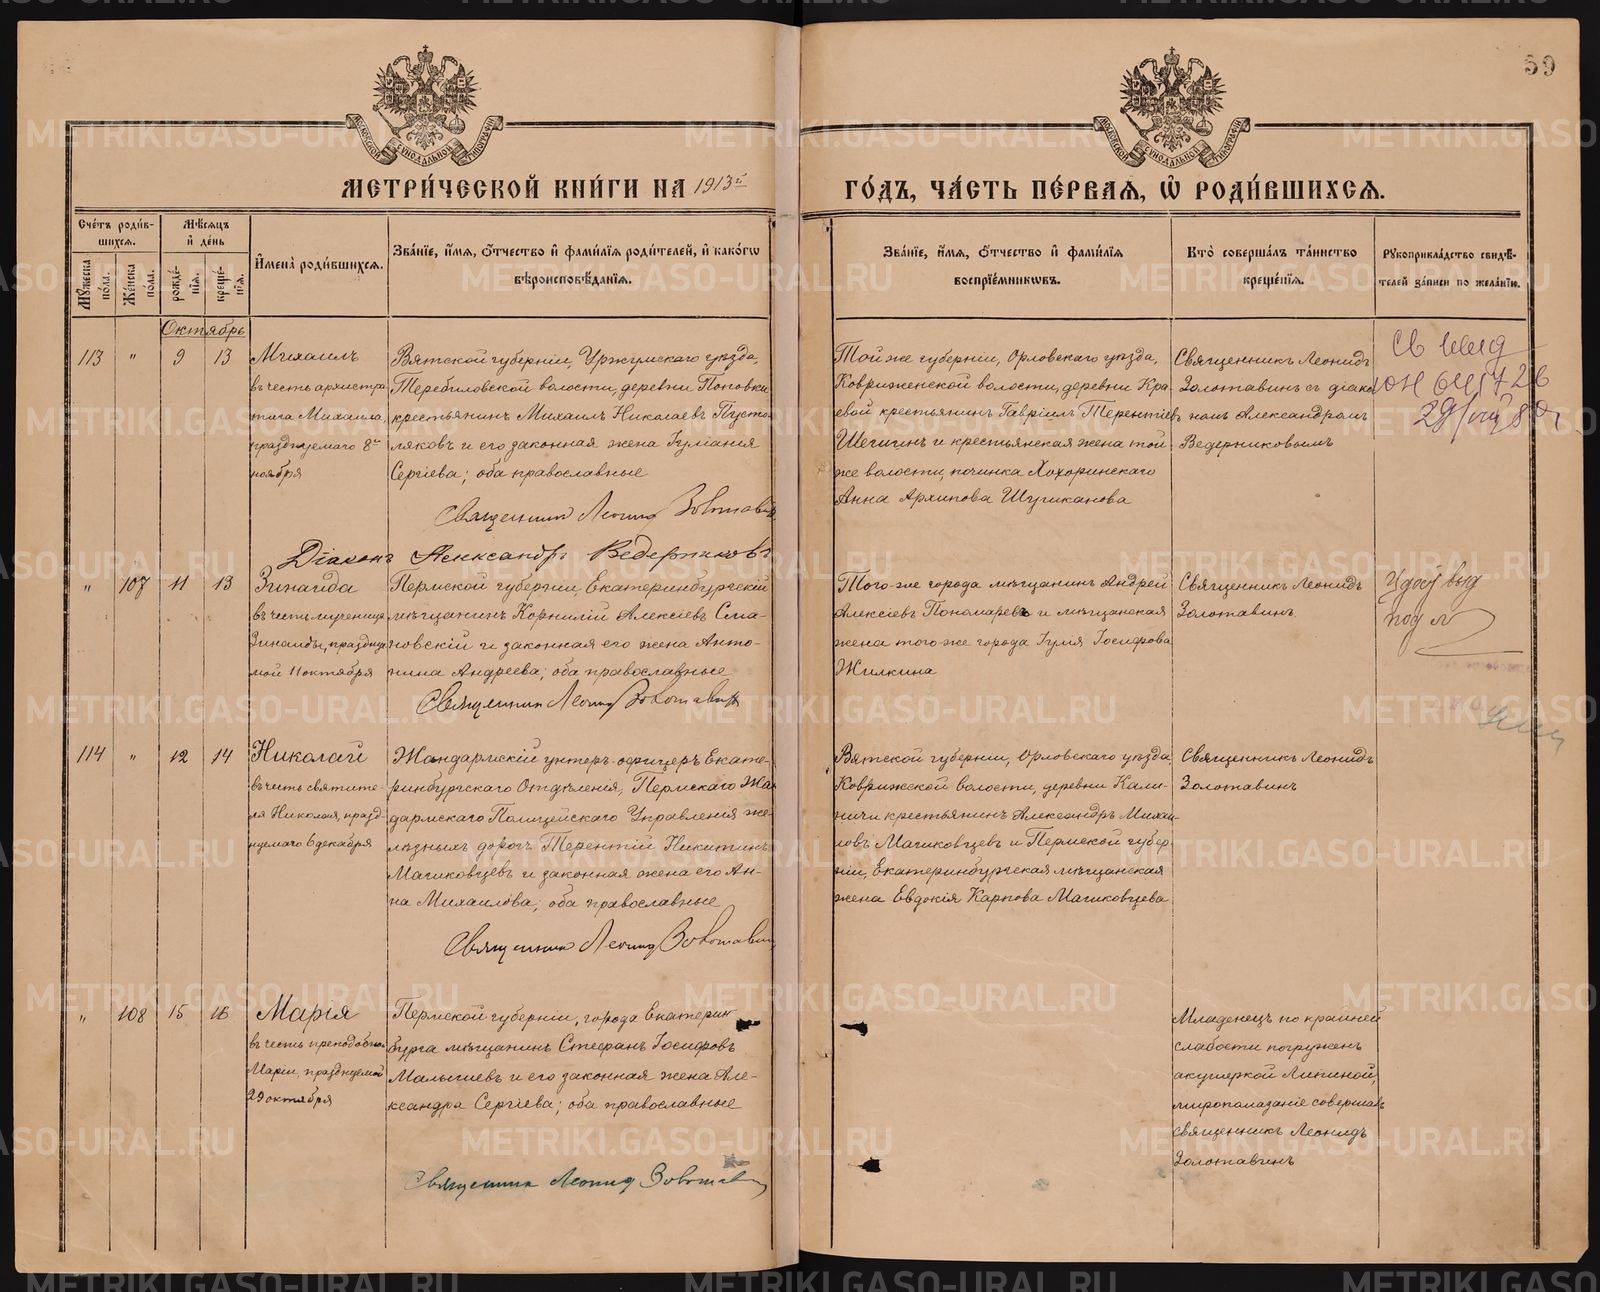 59
МОСКОВСКОЙ СѴНОДАЛЬНОЙ ТИПОГРАФІИ
МОСКОВСКОЙ СѴНОДАЛЬНОЙ ТИПОГРАФІИ
МЕТРИ́ЧЕСКОЙ КНИ́ГИ НА 1913й
ГО́ДЪ, ЧА́СТЬ ПЕ́РВАѦ, Ѡ҆ РОДИ́ВШИХСѦ.
Сче́тъ роди́в-
шихсѧ.
Мѣ́сѧцъ
и҆ де́нь
Мꙋ́жеска
по́ла.
Же́нска
по́ла.
рожде́-
нїѧ.
креще́-
нїѧ.
И҆мена̀ роди́вшихсѧ.
Зва́нїе, и҆́мѧ, ѻ҆́тчество и҆ фами́лїѧ роди́телей, и҆ како́гѡ
вѣроисповѣ́данїѧ.
Зва́нїе, и҆́мѧ, ѻ҆́тчество и҆ фами́лїѧ
воспрїе́мникѡвъ.
Кто̀ соверша́лъ та́инство
креще́нїѧ.
Рꙋкоприкла́дство свидѣ́-
телей за́писи по жела́нїю.
Октябрь
113 " 9 13
Михаилъ
въ честь архистра
тига Михаила,
празднуемаго 8го
ноября
Вятской губерніи, Уржумскаго уѣзда,
Теребиловской волости, деревни Поповки
крестьянинъ Михаилъ Николаевъ Пусто
ляковъ и его законная жена Іуліанія
Сергіева; оба православные
Священникъ Леонидъ Золотавинъ
Діаконъ Александръ Ведерниковъ
Той же губерніи, Орловскаго уѣзда,
Ковриженской волости, деревни Кра-
евой крестьянинъ Гавріилъ Терентіевъ
Шегигинъ и крестьянская жена той
же волости, починка Хохоринскаго
Анна Архипова Шушканова
Священникъ Леонидъ
Золотавинъ съ діако
номъ Александромъ
Ведерниковымъ
" 107 11 13
Зинаида
въ честь мученицы
Зинаиды, праздну
мой 11 октября
Пермской губерніи, Екатеринбургскій
мѣщанинъ Корнилій Алексіевъ Сма-
новскій и законная его жена Анто-
нина Андреева; оба православные
Священникъ Леонидъ Золотавинъ
Того-же города мѣщанинъ Андрей
Алексіевъ Пономаревъ и мѣщанская
жена того же города Іулія Іосифова
Жилкина
Священникъ Леонидъ
Золотавинъ
114 " 12 14
Николай
въ честь святите-
ля Николая, празд-
нуемаго 6 декабря
Жандармскій унтеръ-офицеръ Екате-
ринбургскаго Отдѣленія, Пермскаго Жан
дармскаго Полицейскаго Управленія же-
лѣзныхъ дорогъ Терентій Никитинъ
Машковцевъ и законная жена его Ан-
на Михаилова; оба православные
Священникъ Леонидъ Золотавинъ
Вятской губерніи, Орловскаго уѣзда
Коврижской волости, деревни Кали-
ничи крестьянинъ Александръ Михаи
ловъ Машковцевъ и Пермской губер
ніи, Екатеринбургская мѣщанская
жена Евдокія Карпова Машковцева
Священникъ Леонидъ
Золотавинъ
" 108 15 16
Марія
въ честь преподобной
Маріи, празднуемой
29 октября
Пермской губерніи, города Екатерин
бурга мѣщанинъ Стефанъ Іосифовъ
Малышевъ и его законная жена Але-
ксандра Сергіева; оба православные
Священникъ Леонидъ Золотавинъ
Младенецъ по крайней
слабости погруженъ
акушеркой Липиной,
миропомазаніе совершалъ
священникъ Леонидъ
Золотавинъ
METRIKI.GASO-URAL.RU